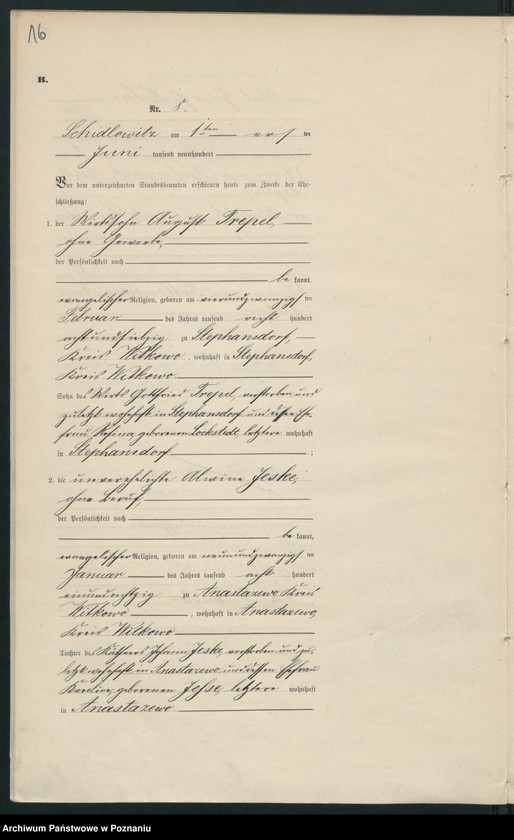 16
B.
Nr. 5.
Schidlowitz am 1ten ers ten
Juni tausend neunhundert
Vor dem unterzeichneten Standesbeamten erschienen heute zum Zwecke der Ehe-
schließung:
1. der Wirtssohn August Trepel,
ohne Gewerbe,
der Persönlichkeit nach
be kannt,
evangelischer Religion, geboren am vierundzwanzigs ten
Februar des Jahres tausend acht hundert
achtundsiebzig zu Stephansdorf,
Kreis Witkowo, wohnhaft in Stephansdorf,
Kreis Witkowo
Sohn des Wirts Gottfried Trepel, verstorben und
zuletzt wohnhaft in Stephansdorf und dessen Ehe-
frau Rosina geborenen Lockstedt, letztere wohnhaft
in Stephansdorf ;
2. die unverehelichte Alwine Jeske,
ohne Beruf,
der Persönlichkeit nach
be kannt,
evangelischer Religion, geboren am neunundzwanzigs ten
Januar des Jahres tausend acht hundert
einundachtzig zu Anastazewo, Kreis
Witkowo, wohnhaft in Anastazewo,
Kreis Witkowo
Tochter des Käthners Johann Jeske, verstorben und zu-
letzt wohnhaft in Anastazewo und dessen Ehefrau
geborenen Jesse, letztere wohnhaft
in Anastazewo
Archiwum Państwowe w Poznaniu